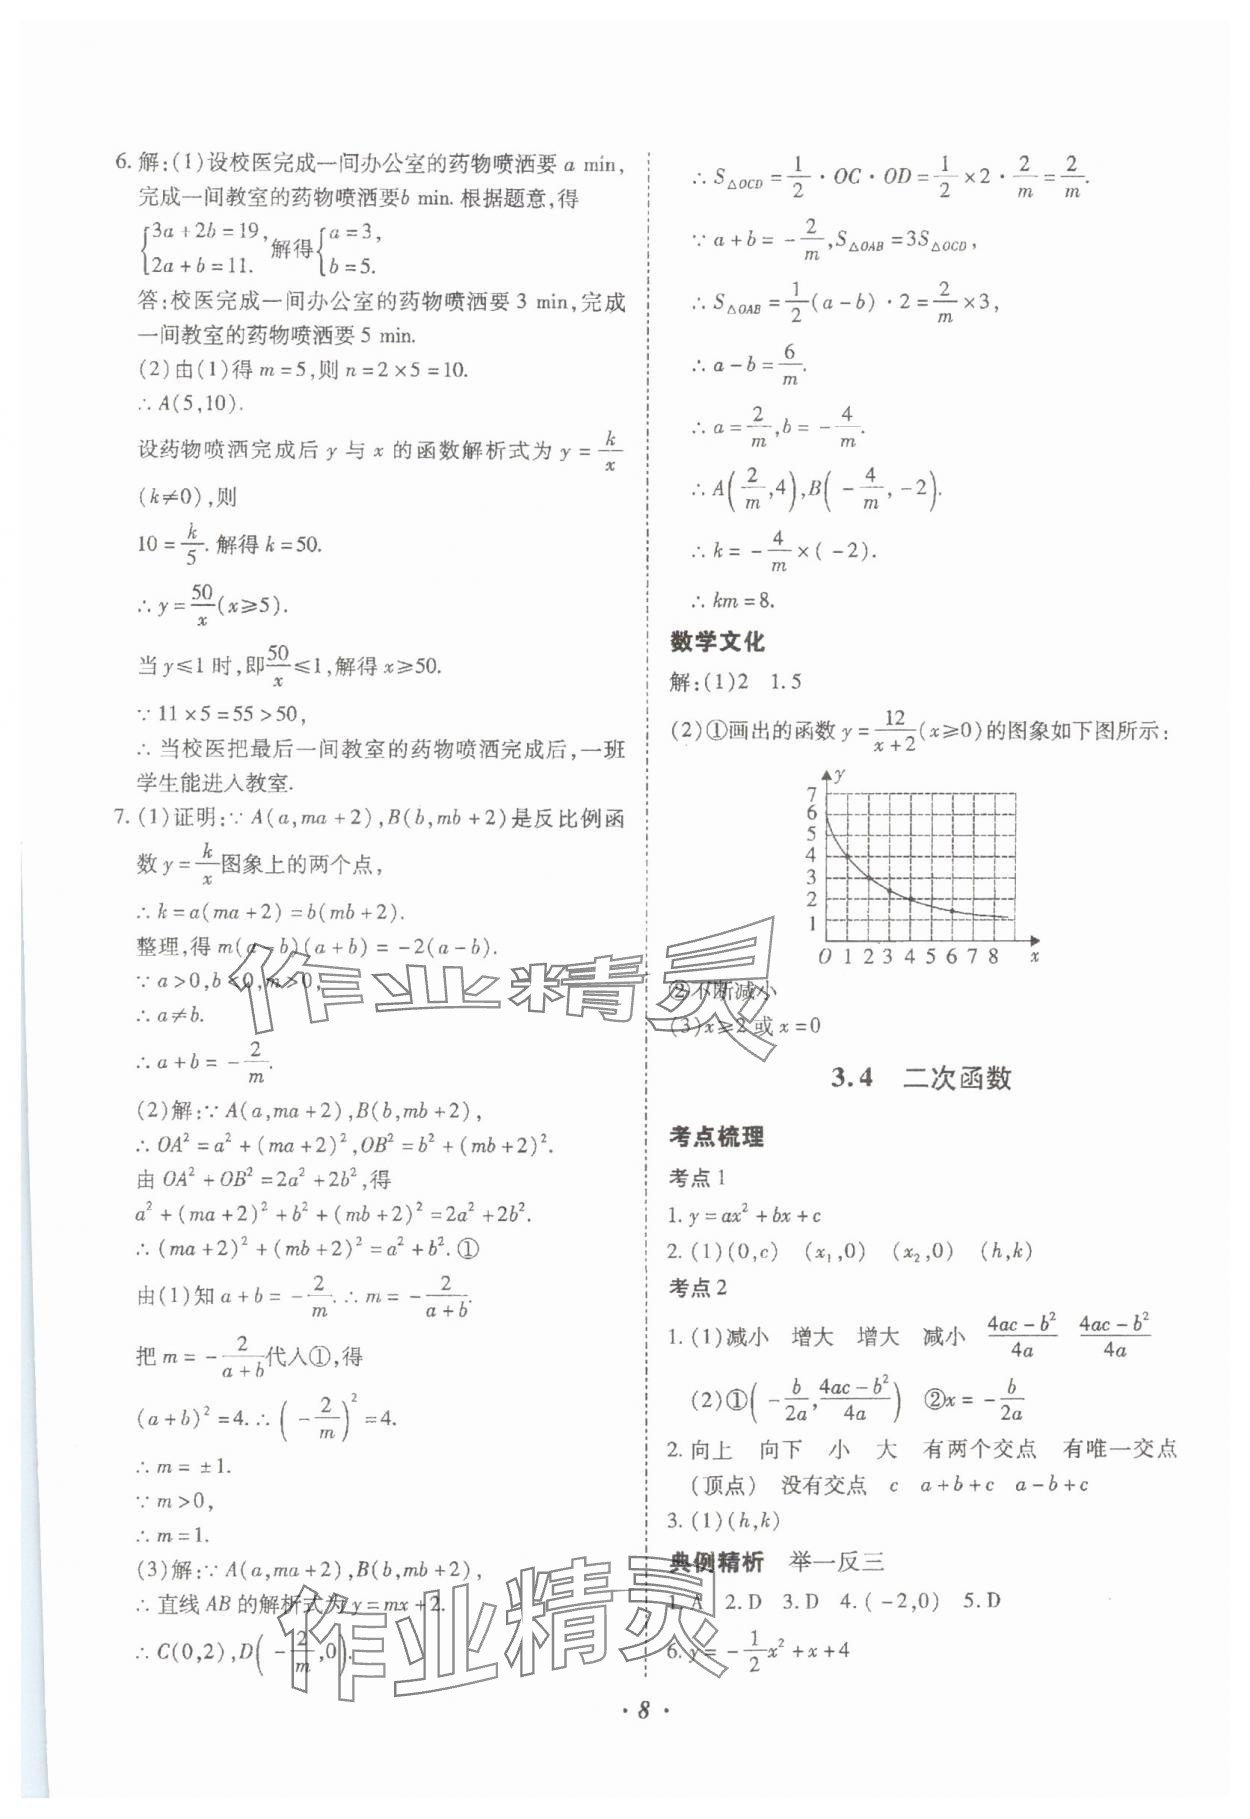 6. 解:(1)设校医完成一间办公室的药物喷洒要 a min,
完成一间教室的药物喷洒要b min. 根据题意,得
{3a+2b=19, 2a+b=11. 解得{a=3, b=5.
答:校医完成一间办公室的药物喷洒要 3 min,完成
一间教室的药物喷洒要 5 min.
(2)由(1)得 m=5,则 n=2×5=10.
∴A(5,10).
设药物喷洒完成后 y 与 x 的函数解析式为 y=k/x
(k≠0),则
10=k/5. 解得 k=50.
∴y=50/x(x≥5).
当 y≤1 时,即50/x≤1,解得 x≥50.
∵11×5=55>50,
∴当校医把最后一间教室的药物喷洒完成后,一班
学生能进入教室.
7. (1)证明:∵A(a,ma+2),B(b,mb+2)是反比例函
数 y=k/x图象上的两个点,
∴k=a(ma+2)=b(mb+2).
整理,得 m(a-b)(a+b)=-2(a-b).
∵a>0,b<0,m>0,
∴a≠b.
∴a+b=-2/m.
(2)解:∵A(a,ma+2),B(b,mb+2),
∴OA²=a²+(ma+2)²,OB²=b²+(mb+2)².
由 OA²+OB²=2a²+2b²,得
a²+(ma+2)²+b²+(mb+2)²=2a²+2b².
∴(ma+2)²+(mb+2)²=a²+b². ①
由(1)知 a+b=-2/m. ∴m=-2/(a+b).
把 m=-2/(a+b)代入①,得
(a+b)²=4. ∴(-2/m)²=4.
∴m=±1.
∵m>0,
∴m=1.
(3)解:∵A(a,ma+2),B(b,mb+2),
∴直线 AB 的解析式为 y=mx+2.
∴C(0,2),D(-2/m,0).
∴S△OCD=1/2·OC·OD=1/2×2·2/m=2/m.
∵a+b=-2/m,S△OAB=3S△OCD,
∴S△OAB=1/2(a-b)·2=2/m×3,
∴a-b=6/m.
∴a=2/m,b=-4/m.
∴A(2/m,4),B(-4/m,-2).
∴k=-4/m×(-2).
∴km=8.
数学文化
解:(1)2 1.5
(2)①画出的函数 y=12/(x+2)(x≥0)的图象如下图所示:
y
7
6
5
4
3
2
1
O 1 2 3 4 5 6 7 8 x
②不断减小
(3)x≥2 或 x=0
3.4 二次函数
考点梳理
考点 1
1. y=ax²+bx+c
2. (1)(0,c) (x₁,0) (x₂,0) (h,k)
考点 2
1. (1)减小 增大 增大 减小 (4ac-b²)/4a (4ac-b²)/4a
(2)①(-b/2a,(4ac-b²)/4a) ②x=-b/2a
2. 向上 向下 小 大 有两个交点 有唯一交点
(顶点) 没有交点 c a+b+c a-b+c
3. (1)(h,k)
典例精析 举一反三
1. A 2. D 3. D 4. (-2,0) 5. D
6. y=-1/2x²+x+4
· 8 ·
作业精灵
作业精灵